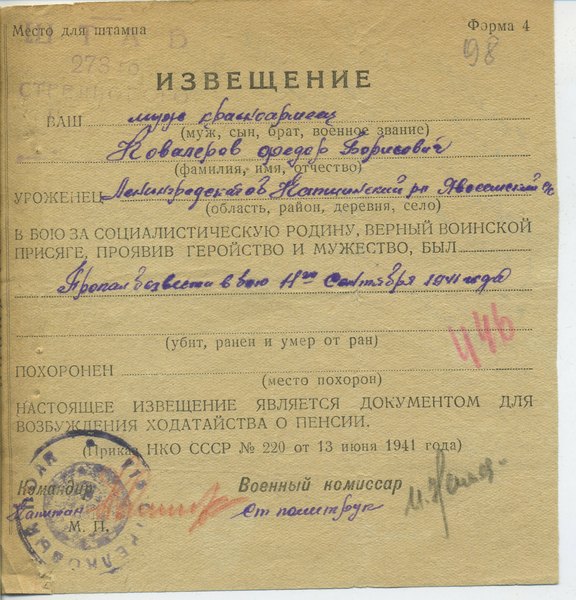 Место для штампа
Форма 4
ШТАБ
98
273 го
ИЗВЕЩЕНИЕ
ВАШ муж красноармеец
(муж, сын, брат, военное звание)
Ковалеров Федор Борисович
(фамилия, имя, отчество)
УРОЖЕНЕЦ
(область, район, деревня, село)
В БОЮ ЗА СОЦИАЛИСТИЧЕСКУЮ РОДИНУ, ВЕРНЫЙ ВОИНСКОЙ
ПРИСЯГЕ, ПРОЯВИВ ГЕРОЙСТВО И МУЖЕСТВО, БЫЛ
Пропал безвести в бою 11го Сентября 1941 года
446
(убит, ранен и умер от ран)
ПОХОРОНЕН
(место похорон)
НАСТОЯЩЕЕ ИЗВЕЩЕНИЕ ЯВЛЯЕТСЯ ДОКУМЕНТОМ ДЛЯ
ВОЗБУЖДЕНИЯ ХОДАТАЙСТВА О ПЕНСИИ.
(Приказ НКО СССР № 220 от 13 июня 1941 года)
Командир
Военный комиссар
Капитан
Ст политрук
М. П.